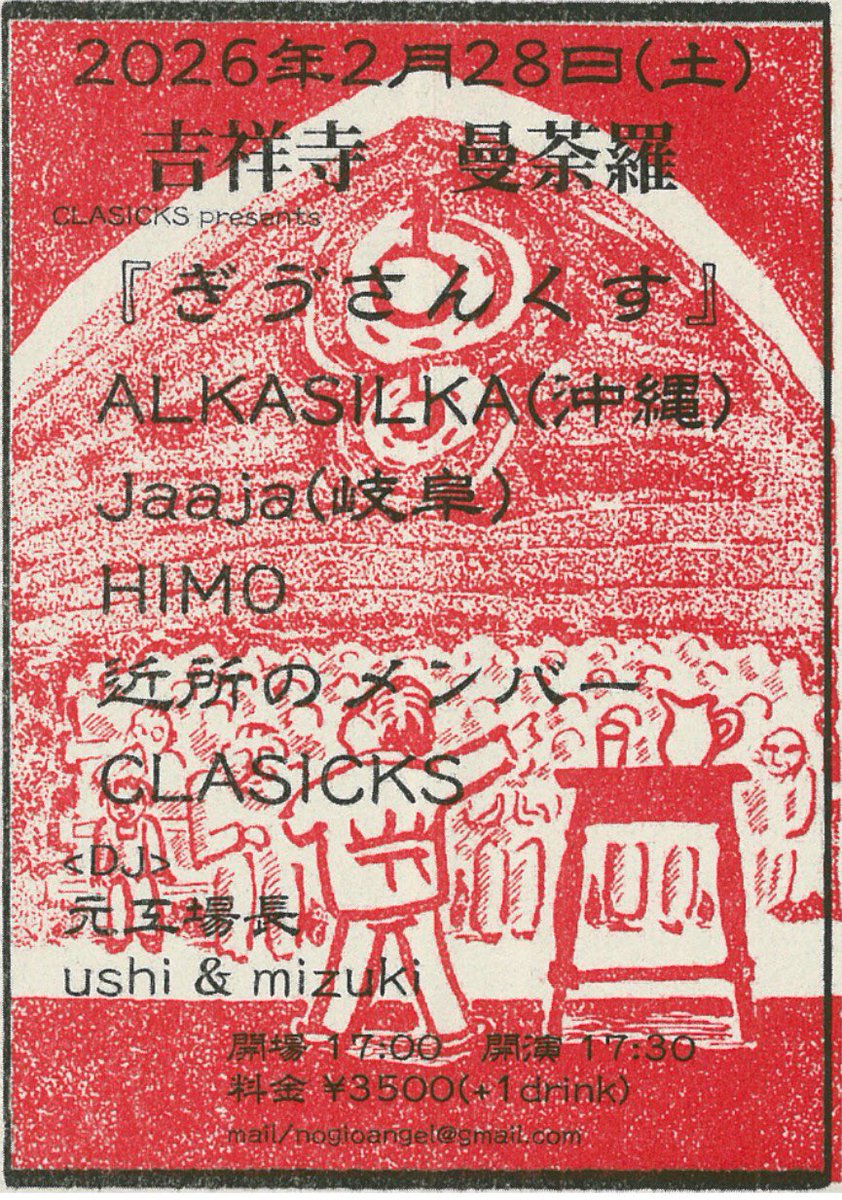 2026年2月28日(土)
吉祥寺　曼荼羅
CLASICKS presants
『ぎゔさんくす』
ALKASILKA(沖縄)
Jaaja(岐阜)
HIMO
近所のメンバー
CLASICKS
<DJ>
元工場長
ushi & mizuki
開場 17:00　開演 17:30
料金 ¥3500(+1drink)
mail/nogioangel@gmail.com